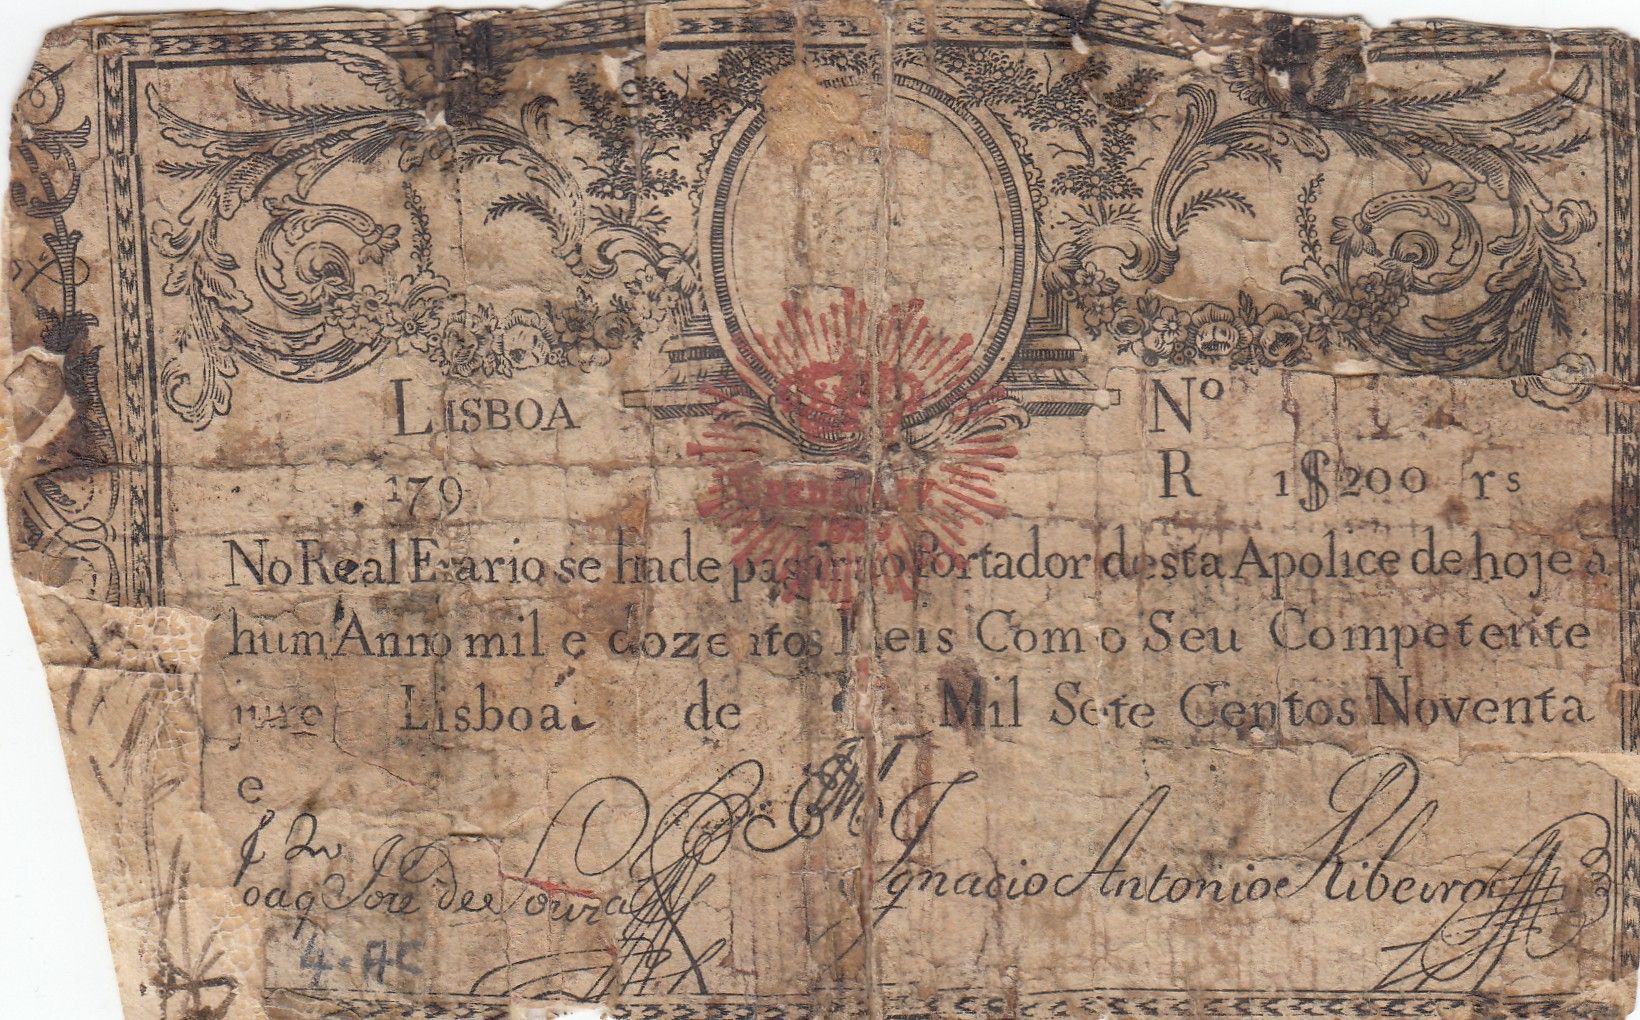 LISBOA
Nº
179
R 1$200 rs
No Real Erario se hade pagar ao Portador desta Apolice de hoje a
hum Anno mil e dozentos Reis Com o Seu Competente
juro Lisboa de Mil Sete Centos Noventa
e
Joaq Jose de Souza Ignacio Antonio Ribeiro
4.AC